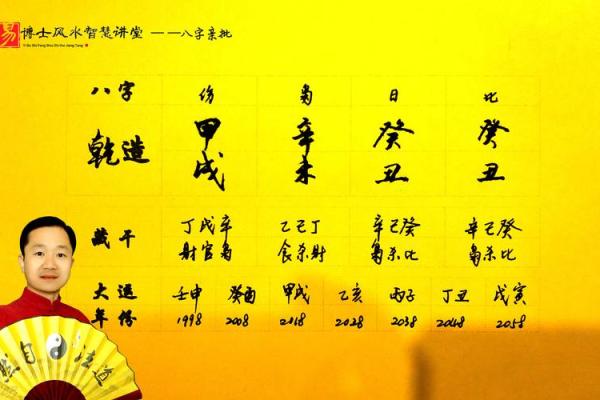 易 博士风水智慧讲堂 ——八字亲批
Yi Bo Shi Feng Shui Zhi Hui Jiang Tang
八字 伤 枭 日 比
乾造 甲戌 辛未 癸丑 癸丑
藏干 丁戊辛 乙己丁 辛己癸 辛己癸
财官枭 食杀财 枭杀比 枭杀比
大运 壬申 癸酉 甲戌 乙亥 丙子 丁丑 戊寅
年份 1998 2008 2018 2028 2038 2048 2058
然自法道